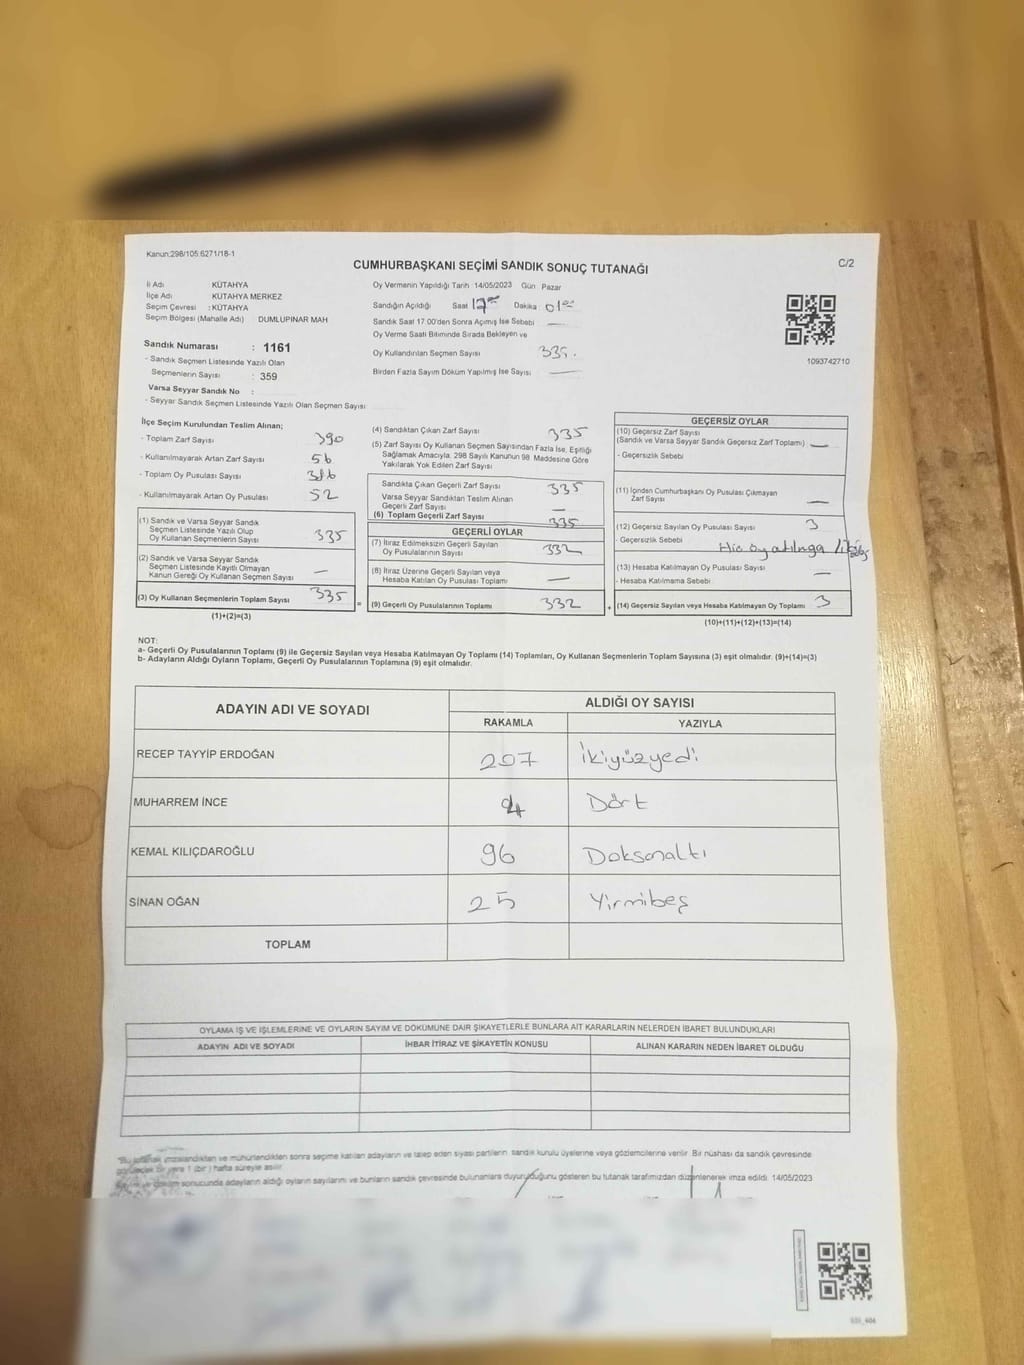 Kanun:298/105:6271/18-1
CUMHURBAŞKANI SEÇİMİ SANDIK SONUÇ TUTANAĞI
C/2
İl Adı KÜTAHYA
İlçe Adı KÜTAHYA MERKEZ
Seçim Çevresi : KÜTAHYA
Seçim Bölgesi (Mahalle Adı) DUMLUPINAR MAH
Sandık Numarası : 1161
- Sandık Seçmen Listesinde Yazılı Olan
Seçmenlerin Sayısı : 359
Varsa Seyyar Sandık No :
- Seyyar Sandık Seçmen Listesinde Yazılı Olan Seçmen Sayısı
Oy Vermenin Yapıldığı Tarih 14/05/2023 Gün Pazar
Sandığın Açıldığı Saat 17 Dakika 01
Sandık Saat 17.00'den Sonra Açımış İse Sebebi —
Oy Verme Saati Bitiminde Sırada Bekleyen ve
Oy Kullandırılan Seçmen Sayısı 335.
Birden Fazla Sayım Döküm Yapılmış İse Sayısı —
1093742710
İlçe Seçim Kurulundan Teslim Alınan;
- Toplam Zarf Sayısı 390
- Kullanılmayarak Artan Zarf Sayısı 56
- Toplam Oy Pusulası Sayısı 386
- Kullanılmayarak Artan Oy Pusulası 52
(1) Sandık ve Varsa Seyyar Sandık
Seçmen Listesinde Yazılı Olup
Oy Kullanan Seçmenlerin Sayısı 335
(2) Sandık ve Varsa Seyyar Sandık
Seçmen Listesinde Kayıtlı Olmayan
Kanun Gereği Oy Kullanan Seçmen Sayısı —
(3) Oy Kullanan Seçmenlerin Toplam Sayısı 335
(1)+(2)=(3)
(4) Sandıktan Çıkan Zarf Sayısı 335
(5) Zarf Sayısı Oy Kullanan Seçmen Sayısından Fazla İse, Eşitliği
Sağlamak Amacıyla, 298 Sayılı Kanunun 98 Maddesine Göre
Yakılarak Yok Edilen Zarf Sayısı
Sandıkta Çıkan Geçerli Zarf Sayısı 335
Varsa Seyyar Sandıktan Teslim Alınan
Geçerli Zarf Sayısı —
(6) Toplam Geçerli Zarf Sayısı 335
GEÇERLİ OYLAR
(7) İtiraz Edilmeksizin Geçerli Sayılan
Oy Pusulalarının Sayısı 332
(8) İtiraz Üzerine Geçerli Sayılan veya
Hesaba Katılan Oy Pusulası Toplamı —
=
(9) Geçerli Oy Pusulalarının Toplamı 332
+
GEÇERSİZ OYLAR
(10) Geçersiz Zarf Sayısı
(Sandık ve Varsa Seyyar Sandık Geçersiz Zarf Toplamı) —
- Geçersizlik Sebebi
(11) İçinden Cumhurbaşkanı Oy Pusulası Çıkmayan
Zarf Sayısı —
(12) Geçersiz Sayılan Oy Pusulası Sayısı 3
- Geçersizlik Sebebi
Hiç oy
(13) Hesaba Katılmayan Oy Pusulası Sayısı —
- Hesaba Katılmama Sebebi
(14) Geçersiz Sayılan veya Hesaba Katılmayan Oy Toplamı 3
(10)+(11)+(12)+(13)=(14)
NOT:
a- Geçerli Oy Pusulalarının Toplamı (9) ile Geçersiz Sayılan veya Hesaba Katılmayan Oy Toplamı (14) Toplamları, Oy Kullanan Seçmenlerin Toplam Sayısına (3) eşit olmalıdır. (9)+(14)=(3)
b- Adayların Aldığı Oyların Toplamı, Geçerli Oy Pusulalarının Toplamına (9) eşit olmalıdır.
ADAYIN ADI VE SOYADI
ALDIĞI OY SAYISI
RAKAMLA YAZIYLA
RECEP TAYYİP ERDOĞAN 207 İkiyüzyedi
MUHARREM İNCE 4 Dört
KEMAL KILIÇDAROĞLU 96 Doksanaltı
SİNAN OĞAN 25 Yirmibeş
TOPLAM
OYLAMA İŞ VE İŞLEMLERİNE VE OYLARIN SAYIM VE DÖKÜMÜNE DAİR ŞİKAYETLERLE BUNLARA AİT KARARLARIN NELERDEN İBARET BULUNDUKLARI
ADAYIN ADI VE SOYADI İHBAR İTİRAZ VE ŞİKAYETİN KONUSU ALINAN KARARIN NEDEN İBARET OLDUĞU
"Bu tutanak imzalandıktan ve mühürlendikten sonra seçime katılan adayların ve talep eden siyasi partilerin sandık kurulu üyelerine veya gözlemcilerine verilir. Bir nüshası da sandık çevresinde
görülecek bir yere 1 (bir) hafta süreyle asılır.
sonucunda adayların aldığı oyların sayılarını ve bunların sandık çevresinde bulunanlara duyurulduğunu gösteren bu tutanak tarafımızdan düzenlenerek imza edildi. 14/05/2023